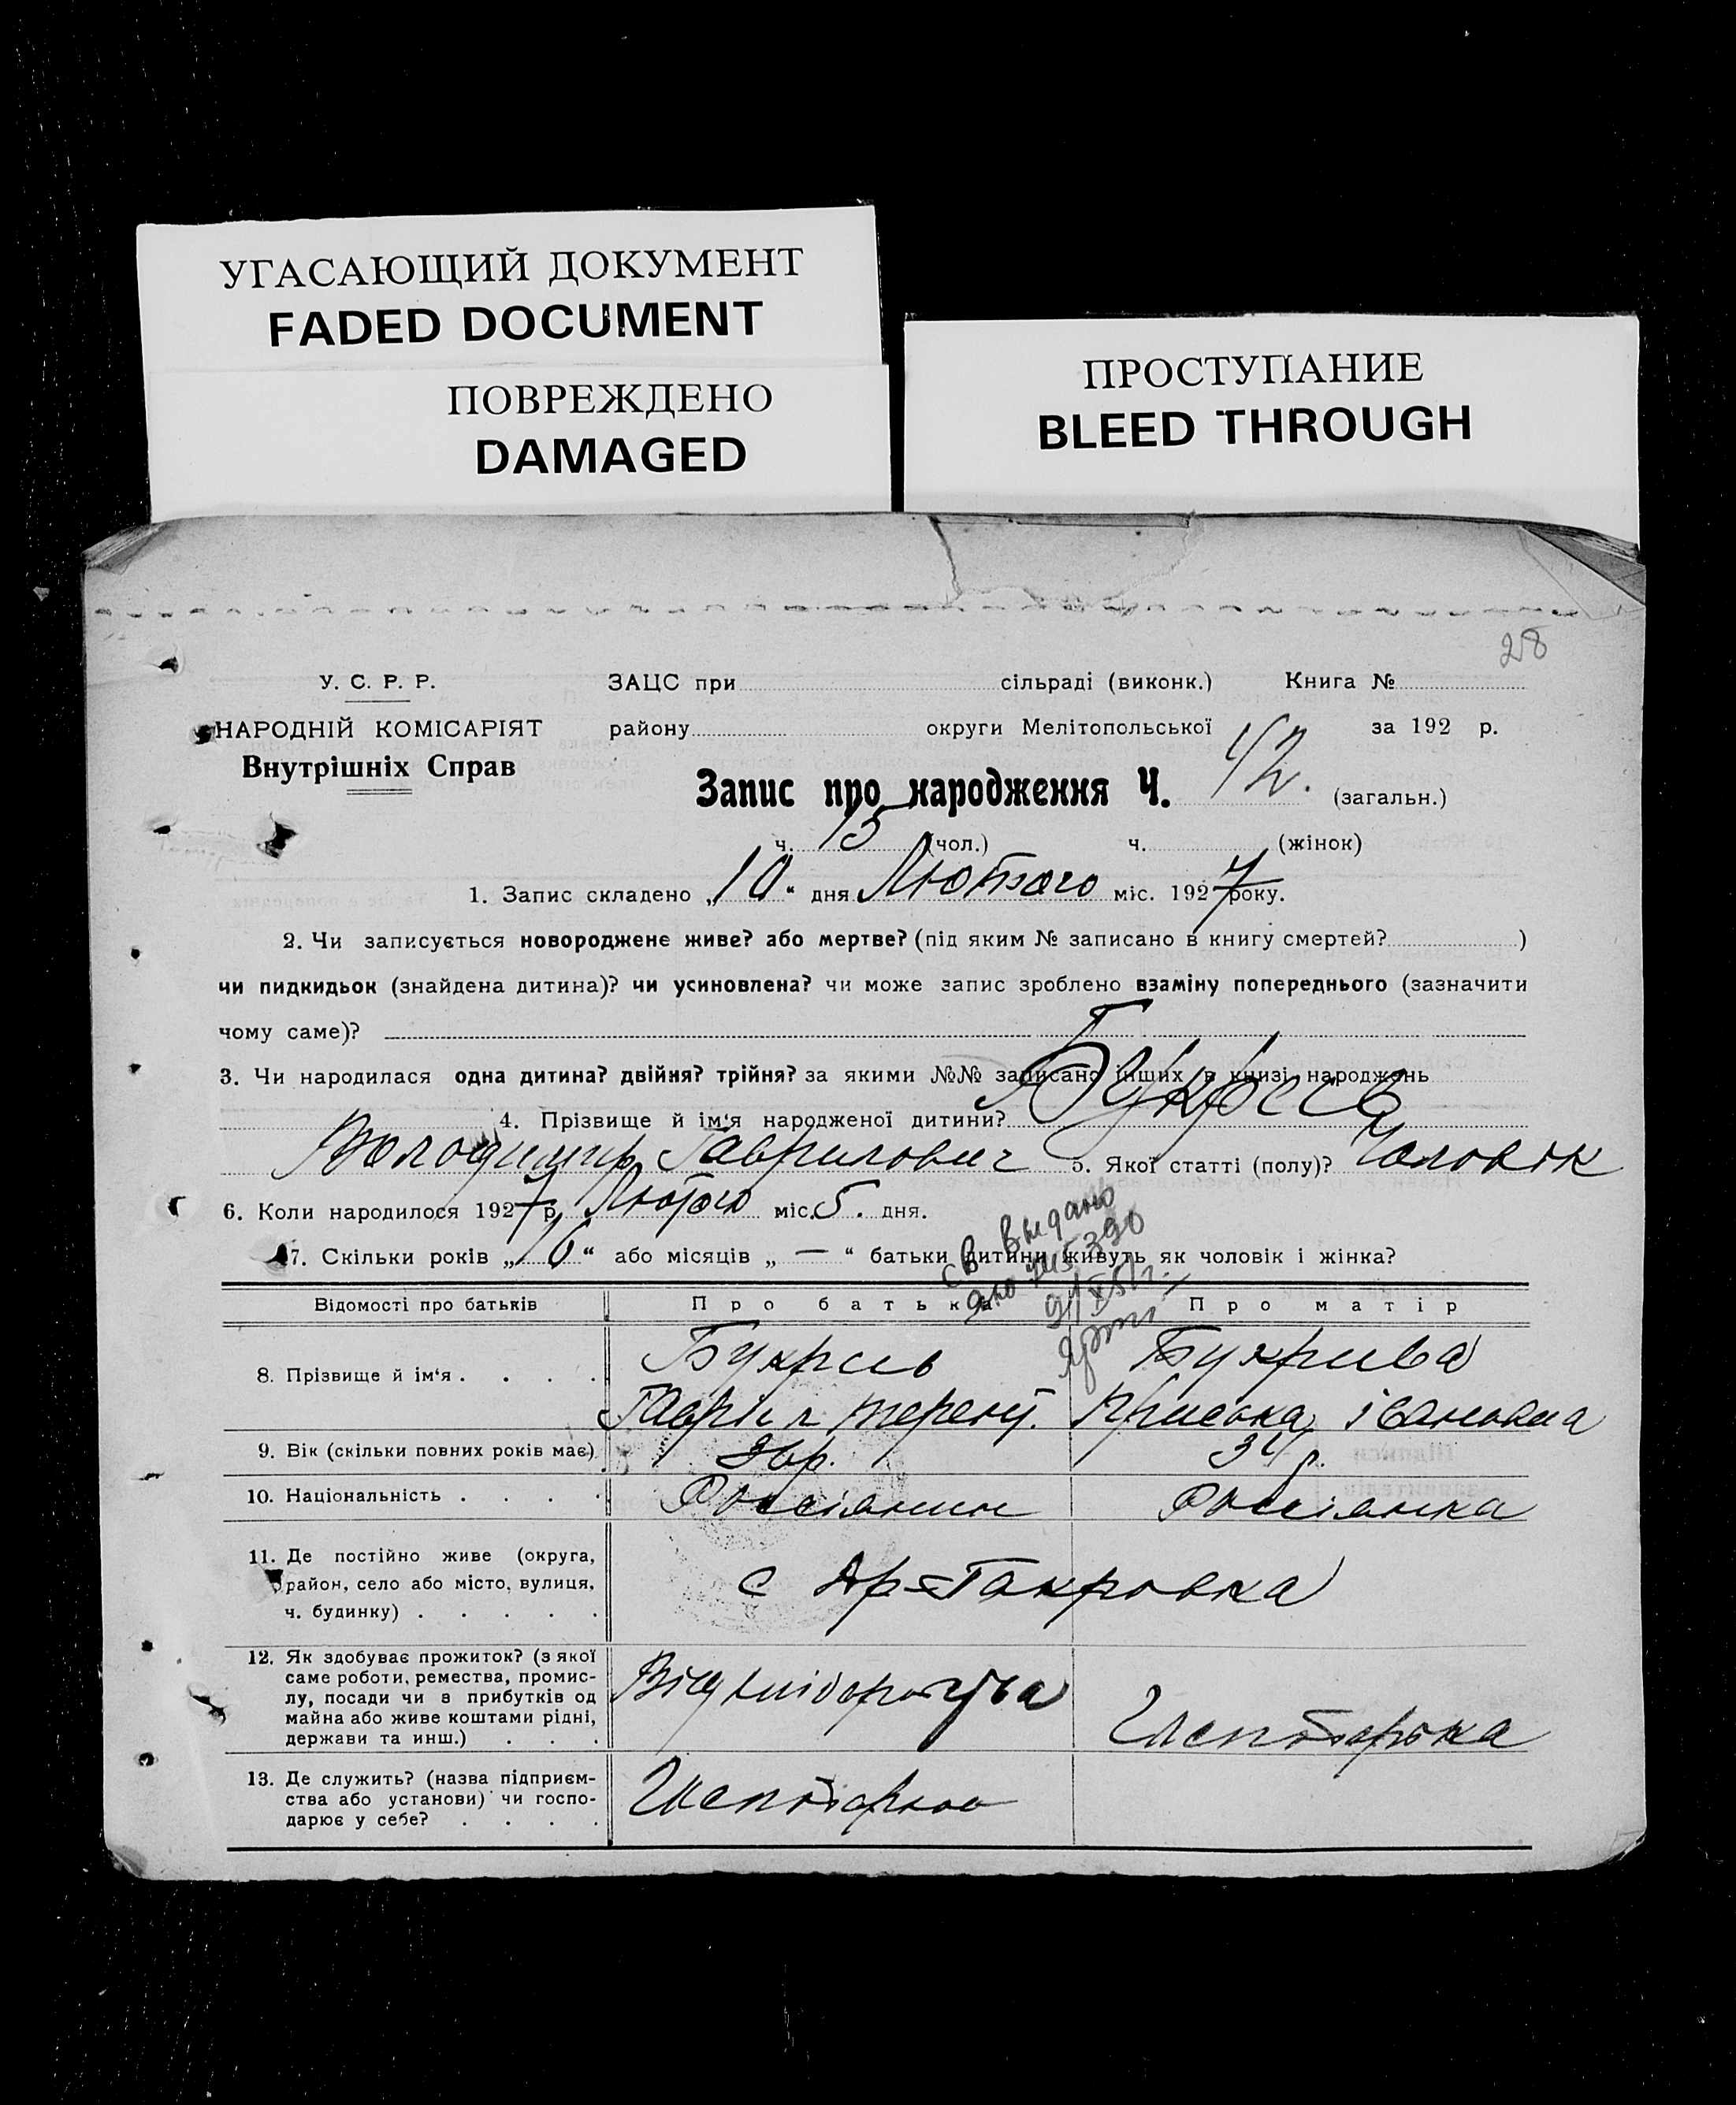 УГАСАЮЩИЙ ДОКУМЕНТ
FADED DOCUMENT
ПОВРЕЖДЕНО
DAMAGED
ПРОСТУПАНИЕ
BLEED THROUGH
28
У. С. Р. Р.
НАРОДНІЙ КОМІСАРІЯТ
Внутрішніх Справ
ЗАЦС при сільраді (виконк.) Книга №
району округи Мелітопольської за 192 р.
Запис про народження Ч. 42. (загальн.)
ч. 15 (чол.) ч. (жінок)
1. Запис складено „10“ дня Лютого міс. 1927 року.
2. Чи записується новороджене живе? або мертве? (під яким № записано в книгу смертей? )
чи пидкидьок (знайдена дитина)? чи усиновлена? чи може запис зроблено взаміну попереднього (зазначити
чому саме)?
3. Чи народилася одна дитина? двійня? трійня? за якими №№ записано інших в книзі народжень
4. Прізвище й ім‘я народженої дитини?
Володимир Гаврилович 5. Якої статті (полу)? Чоловік
6. Коли народилося 1927 р. Лютого міс. 5. дня.
7. Скільки років „16“ або місяців „—“ батьки дитини живуть як чоловік і жінка?
св выдано
Відомості про батьків Про батька Про матір
8. Прізвище й ім‘я . . . .
Гавріил Іванівна
9. Вік (скільки повних років має) 34 р.
10. Національність . . . . Россіянин Россіянка
11. Де постійно живе (округа,
район, село або місто, вулиця,
ч. будинку) . . . . .
с
12. Як здобуває прожиток? (з якої
саме роботи, ремества, промис-
лу, посади чи з прибутків од
майна або живе коштами рідні,
держави та инш.) . . .
13. Де служить? (назва підприєм-
ства або установи) чи госпо-
дарює у себе? . . . .